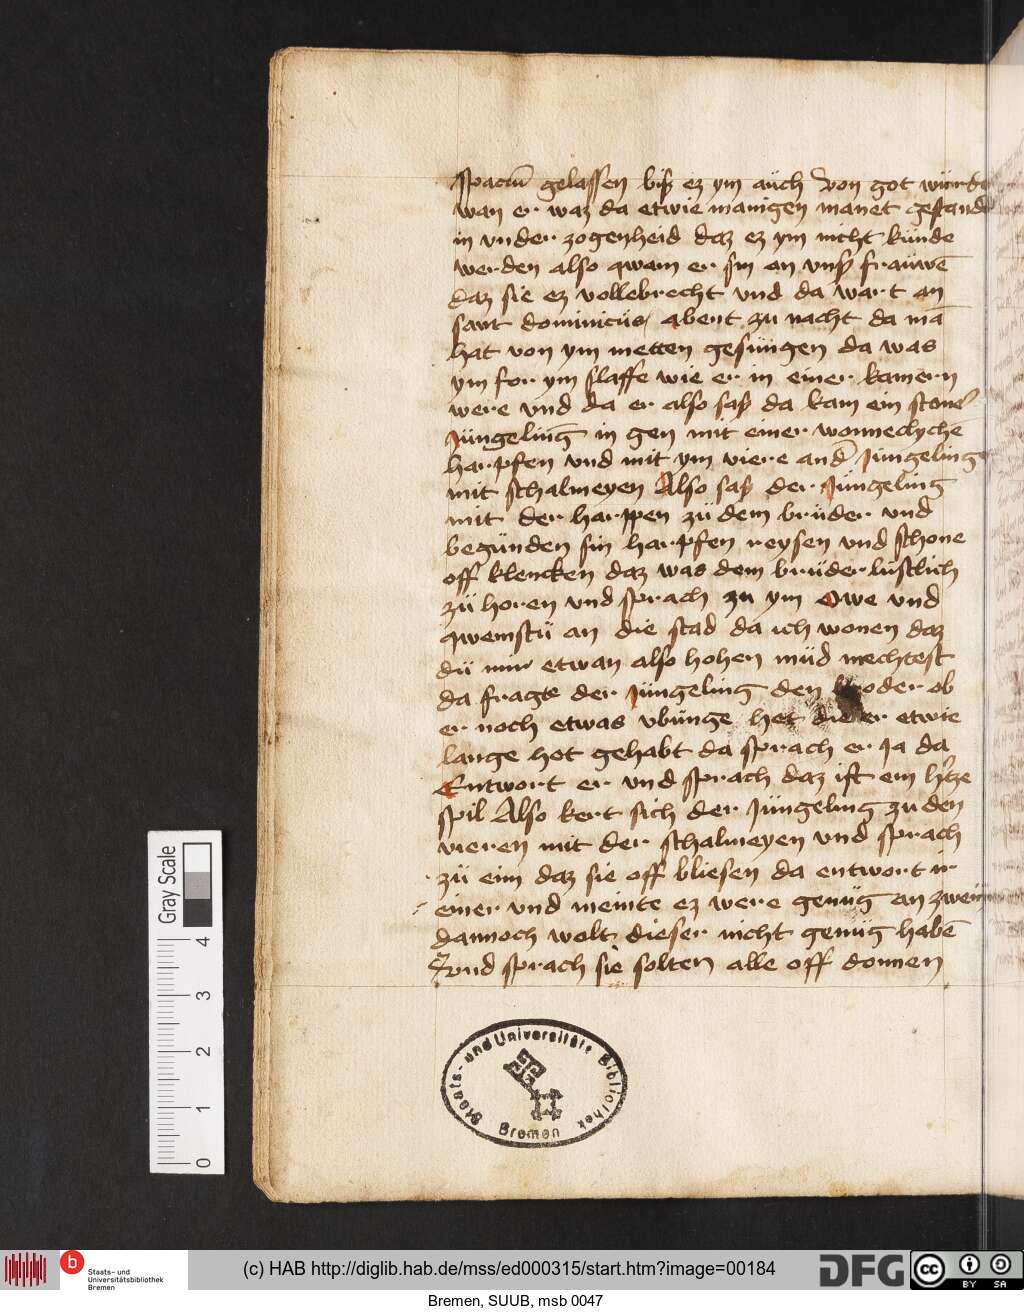 spaciü gelassen biß ez ym aüch von got würde
wan er waz da etwie manigen manet gestande
in vnder zogenheid daz ez ym nicht künde
werden also qwam er sin an vnß fraüwē
daz sie ez vollebrecht vnd da wart an
sant dominicus abent zu nacht da mā
hat von ym metten gesüngen da was
ym for ym slaffe wie er in einer kamern
were vnd da er also saß da kam ein scone
Jüngeling in gen mit einer wonneclychē
harpfen vnd mit ym viere and Jüngeling
mit schalmeyen Also saß der Jüngeling
mit der harppen zu dem brüder vnd
begünden sin harpfen reysen vnd schone
off klencken daz was dem brüder lüstlich
zü horen vnd sprach zu ym Owe vnd
qwemstü an die stad da ich wonen daz
dü mir etwan also hohen müd mechtest
da fragte der Jüngeling den broder ob
er noch etwas vbünge het die er etwie
lange hot gehabt da sprach er Ja da
Entwort er vnd sprach daz ist ein h'tze
spil Also kert sich der Jüngeling zu den
vieren mit der schalmeyen vnd sprach
zü ein daz sie off bliesen da entwort ir
einer vnd meinte ez were genüg an zwein
dannoch wolt dieser nicht genüg habē
vnd sprach sie solten alle off donnen
Staats- und Universitäts Bibliothek
Bremen
Gray Scale
4
3
2
1
0
b
Staats- und
Universitätsbibliothek
Bremen
(c) HAB http://diglib.hab.de/mss/ed000315/start.htm?image=00184
DFG
cc BY SA
Bremen, SUUB, msb 0047